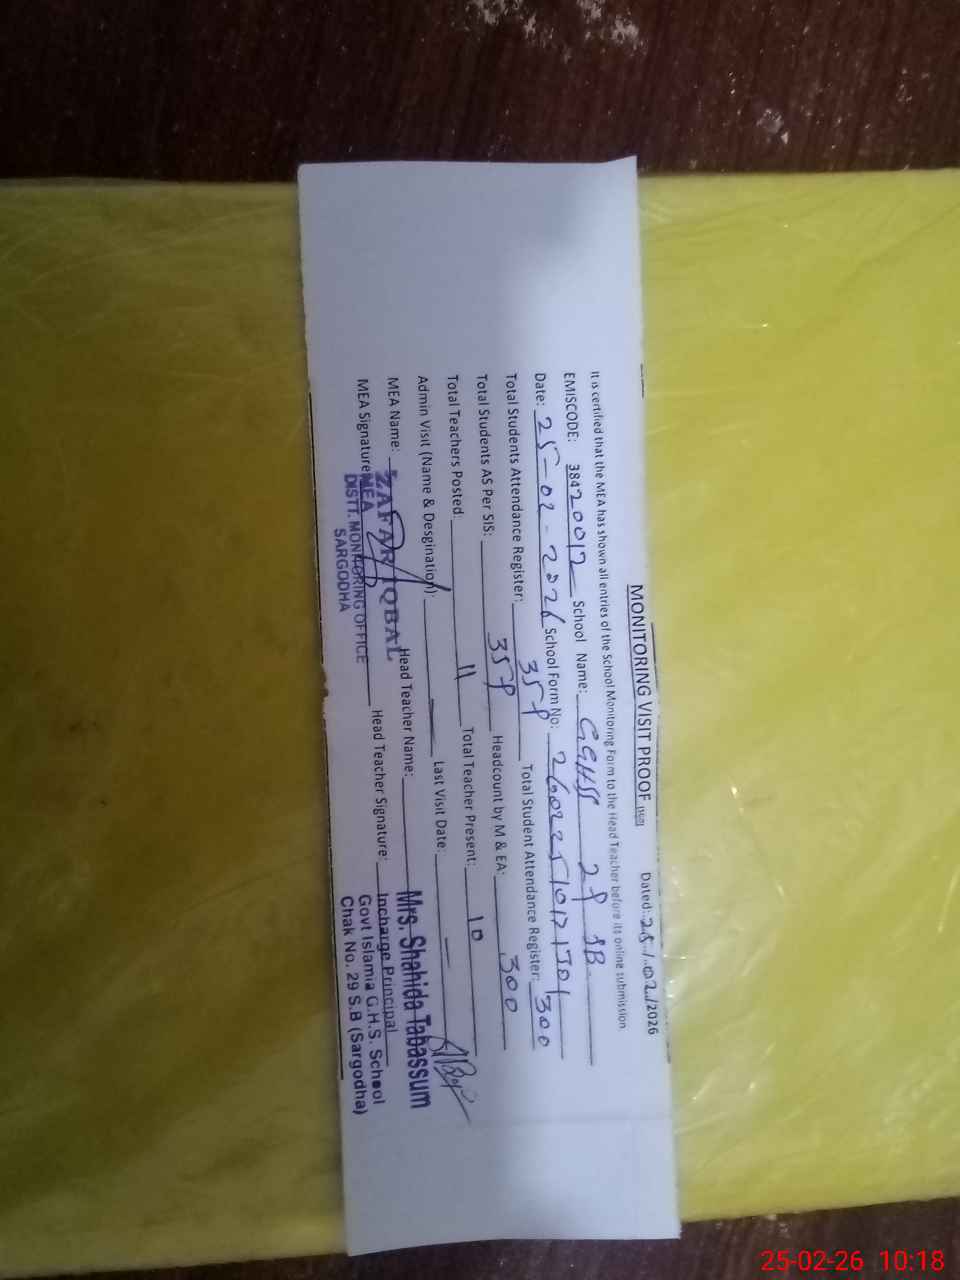 MONITORING VISIT PROOF Dated: 25/02/2026
It is certified that the MEA has shown all entries of the School Monitoring Form to the Head Teacher before its online submission.
EMISCODE: 38420017 School Name: GGHSS 29 SB
Date: 25-02-2026 School Form No:
Total Students Attendance Register: 359 Total Student Attendance Register: 300
Total Students AS Per SIS: 359 Headcount by M & EA: 300
Total Teachers Posted: 11 Total Teacher Present: 10
Admin Visit (Name & Desgination): — Last Visit Date: —
MEA Name: ZAFAR IQBAL Head Teacher Name: Mrs. Shahida Tabassum
MEA Signature: MEA Head Teacher Signature: Incharge Principal
DISTT. MONITORING OFFICE Govt Islamia G.H.S. School
SARGODHA Chak No. 29 S.B (Sargodha)
25-02-26 10:18